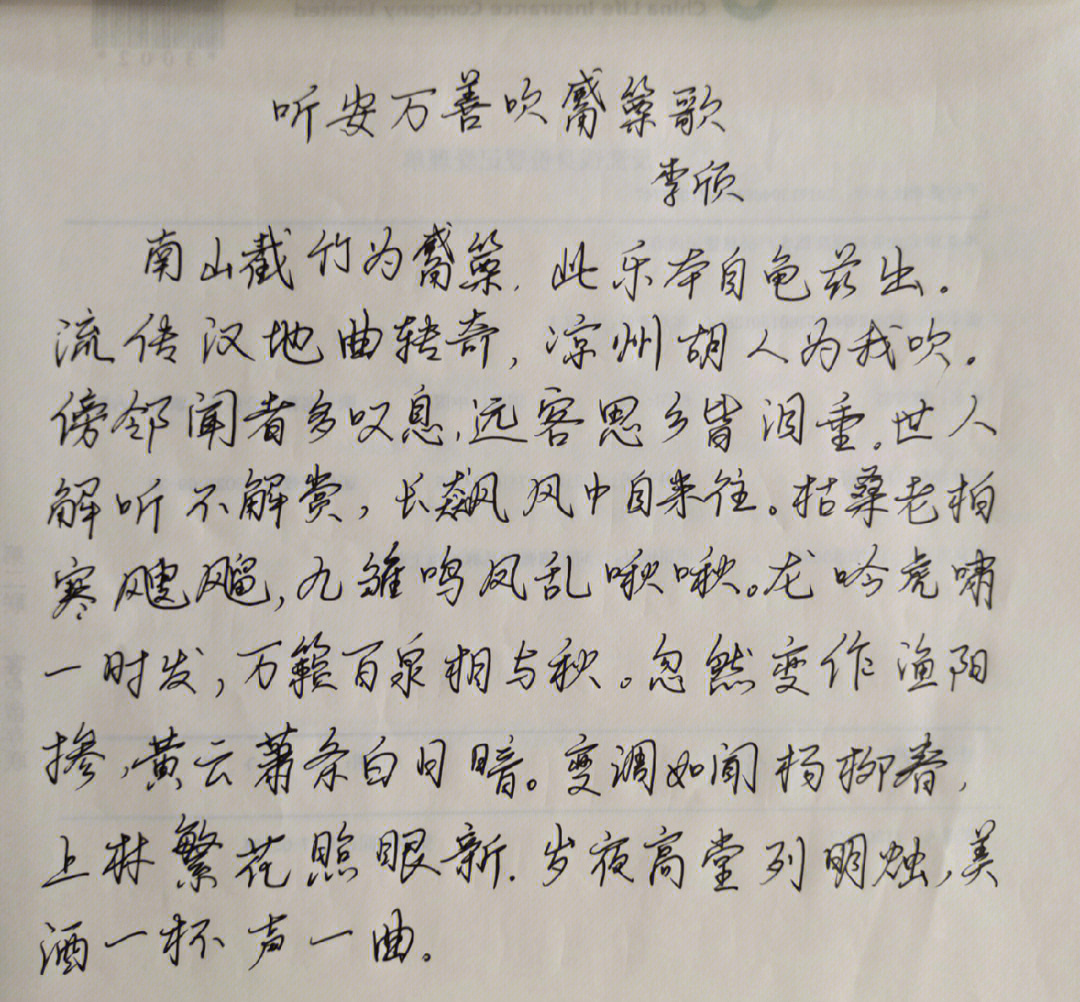 China Life Insurance Company Limited
听安万善吹觱篥歌
李颀
南山截竹为觱篥,此乐本自龟兹出。
流传汉地曲转奇,凉州胡人为我吹。
傍邻闻者多叹息,远客思乡皆泪垂。世人
解听不解赏,长飙风中自来往。枯桑老柏
寒飕飗,九雏鸣凤乱啾啾。龙吟虎啸
一时发,万籁百泉相与秋。忽然变作渔阳
掺,黄云萧条白日暗。变调如闻杨柳春,
上林繁花照眼新.岁夜高堂列明烛,美
酒一杯声一曲。